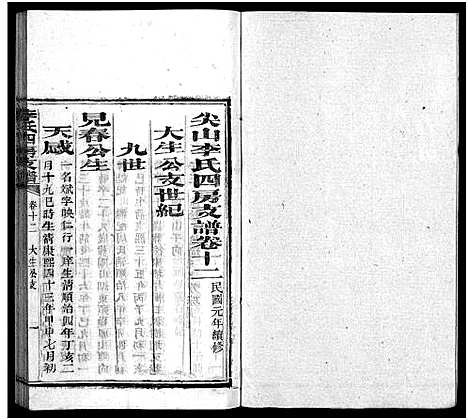 尖山李氏四房支譜卷十二 民國元年續修
大生公支世紀
九世
見春公生
天咸 一名斌字映仁行一庠生清順治四年丁亥二
月十九巳時生清康熙四十三年甲申七月初
李氏四房支譜 卷十二 大生公支 一